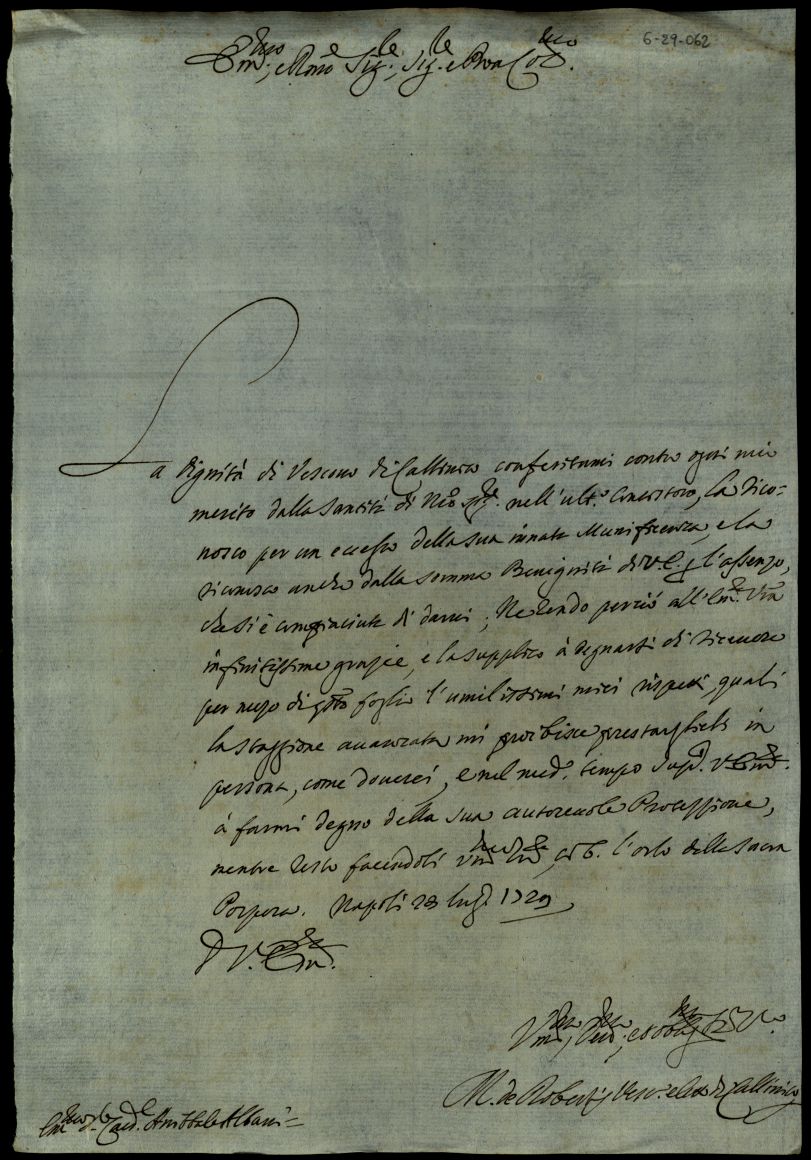 6-29-062
Em.mo, e Rmo Sig.re, Sig.re e Pron Col.mo
La dignità di Vescovo di Callinico conferitami contro ogni mio
merito dalla Santità di Nro Sig.re nell'ult.o Concistoro, la rico=
nosco per un eccesso della sua innata Munificenza, e la
riconosco anche dalla somma Benignità di V.E. p l'assenzo,
che si è compiaciuta di darci; Ne rendo perciò all'Em.za Vra
infinitissime grazie, e la supplico à degnarsi di ricevere
per mezo di qsto foglio l'umilissimi miei rispetti, quali
la staggione avanzata mi proibisce prestarglieli in
persona, come doverei, e nel med.o tempo sup.o V. Em.za
à farmi degno della sua autorevole Protezzione,
mentre resto facendoli um.mo inch.o, e b. l'orlo della Sacra
Porpora. Napoli 23 lug.o 1729
D V. Em.za
Um.mo, Dev.mo, ed obbg.mo Ser.re V.o
M. de Robertis Vesc.o eletto di Callinico
Em.mo Sig.r Card.le Annibale Albani=